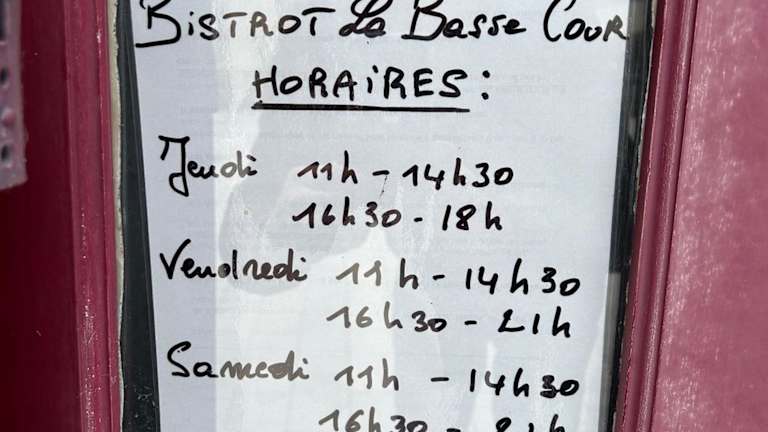 BISTROT La Basse Cour
HORAIRES :
Jeudi 11h - 14h30
16h30 - 18h
Vendredi 11h - 14h30
16h30 - 21h
Samedi 11h - 14h30
16h30 - 21h